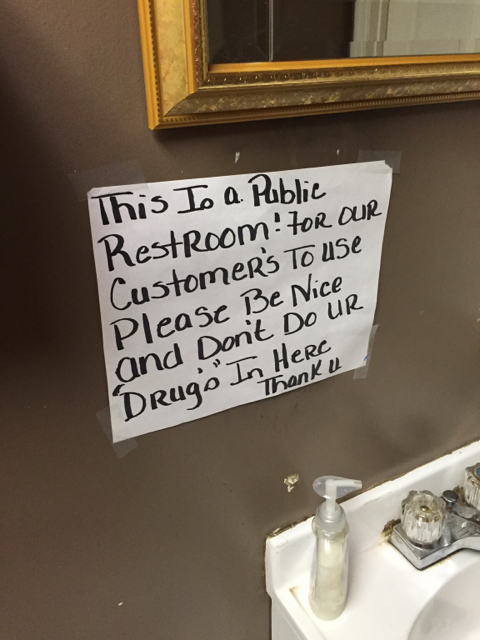 This Is a Public
RestRoom! FOR OUR
Customer's To use
Please Be Nice
and Don't Do UR
"Drug's" In Here
Thank u